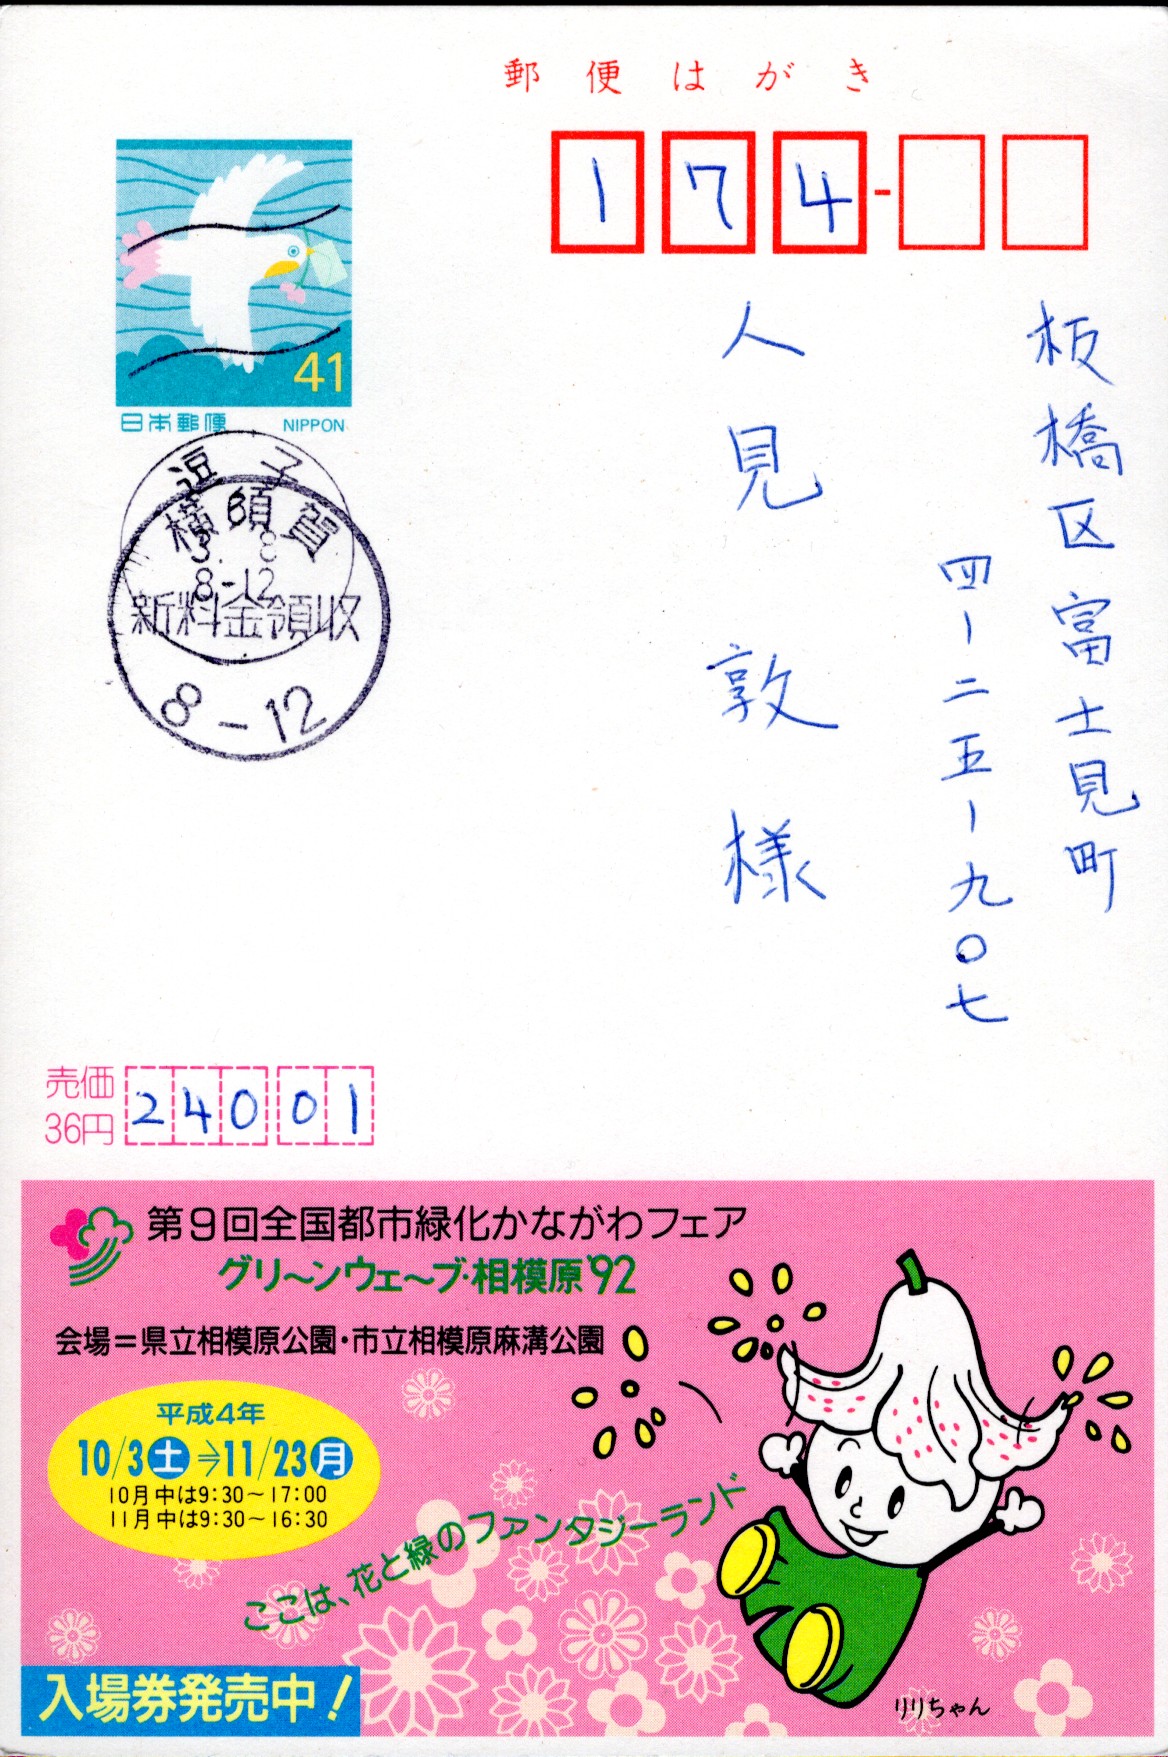 郵便はがき
174-
板橋区富士見町
四ー二五ー九〇七
人見 敦 様
41
日本郵便 NIPPON
逗子
横須賀
8-12
新料金領収
8-12
売価
36円
24001
第9回全国都市緑化かながわフェア
グリ〜ンウェ〜ブ・相模原'92
会場=県立相模原公園・市立相模原麻溝公園
平成4年
10/3土⇒11/23月
10月中は9:30〜17:00
11月中は9:30〜16:30
ここは、花と緑のファンタジーランド
入場券発売中!
りりちゃん